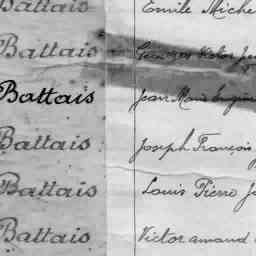 Battais Emile Miche
Battais Georges Victor Je
Battais Jean Marie Eugène
Battais Joseph François J
Battais Louis Pierre Je
Battais Victor amand